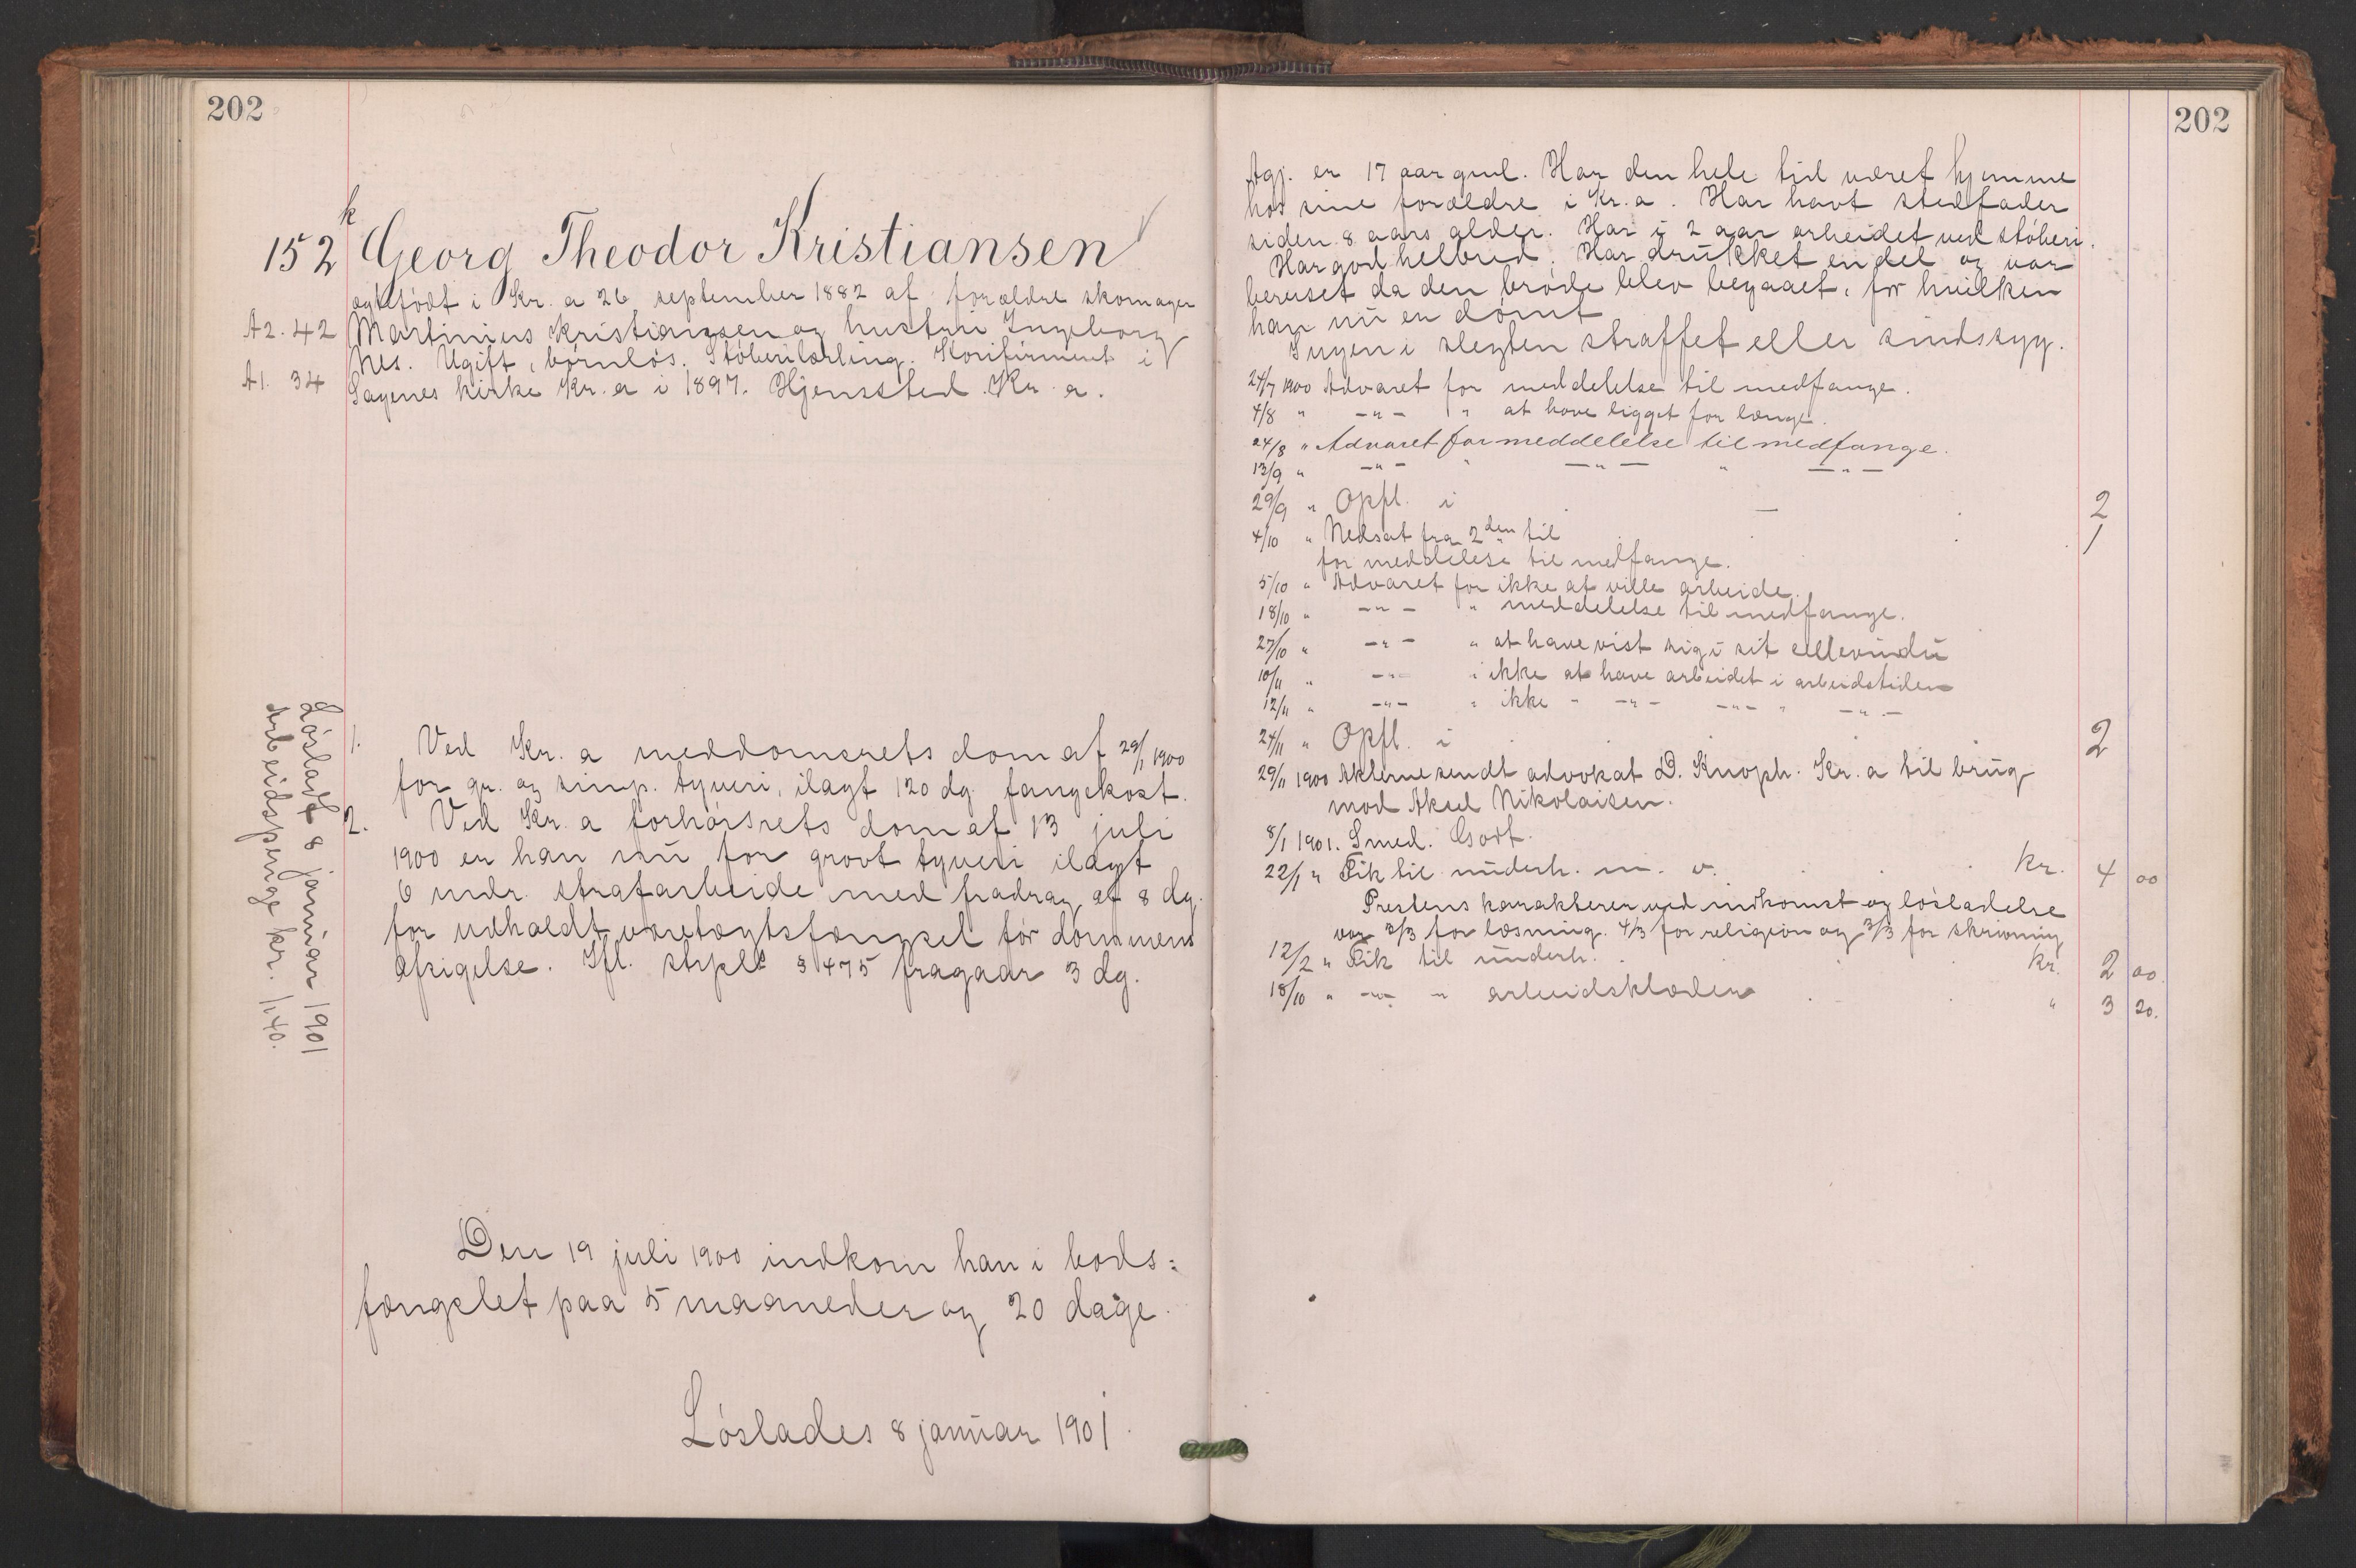 202
k
152 Georg Theodor Kristiansen
ægtefødt i Kr.a 26 september 1882 af forældre skomager
A2. 42 Martinius Kristiansen og hustru Ingeborg
Nes. Ugift, børnløs. Støberilærling. Konfirmeret i
A1. 34 Sagenes kirke Kr.a i 1897. Hjemsted Kr.a.
1. Ved Kr.a meddomsrets dom af 29/1 1900
for gr. og simp. tyveri, ilagt 120 dg. fangekost.
2. Ved Kr.a forhørsrets dom af 13 juli
1900 er han nu for grovt tyveri ilagt
6 mdr. strafarbeide med fradrag af 8 dg.
for udholdt varetægtsfængsel før dommens
afsigelse. Ifl. strpl. § 475 fragaar 3 dg.
Løsladt 8 januar 1901
Arbeidspenge kr. 1,40.
Den 19 juli 1900 indkom han i bods=
fængslet paa 5 maaneder og 20 dage.
Løslades 8 januar 1901.
202
Agj. er 17 aar gml. Har den hele tid været hjemme
hos sine forældre i Kr.a. Har havt stedfader
siden 8 aars alder. Har i 2 aar arbeidet ved støberi.
Har god helbred. Har drukket en del og var
beruset da den brøde blev begaaet, for hvilken
han nu er dømt
Ingen i slegten straffet eller sindssyg.
24/7 1900 Advaret for meddelelse til medfange.
4/8 " -"- " at have ligget for længe.
24/8 " Advaret for meddelelse til medfange.
13/9 " -"- " -"- " -"-
29/9 " Opfl. i 2
4/10 " Nedsat fra 2den til 1
for meddelese til medfange.
5/10 " Advaret for ikke at ville arbeide.
18/10 " -"- " meddelelse til medfange.
27/10 " -"- " at have vist sig i sit cellevindu
10/11 " -"- " ikke at have arbeidet i arbeidstiden
12/11 " -"- " ikke " -"- -"- " -"-
24/11 " Opfl. i 2
29/11 1900 Akterne sendt advokat D. Knoph. Kr.a til brug
mod Aksel Nikolaisen.
8/1 1901. Smed. Godt.
22/1 " Fik til underh. m. v. Kr. 4 00
Prestens karakterer ved indkomst og løsladelse
var 3/3 for læsning. 4/3 for religion og 3/3 for skrivning
12/2 " Fik til underh. Kr. 2 00
18/10 " -"- " arbeidsklæder " 3 20.